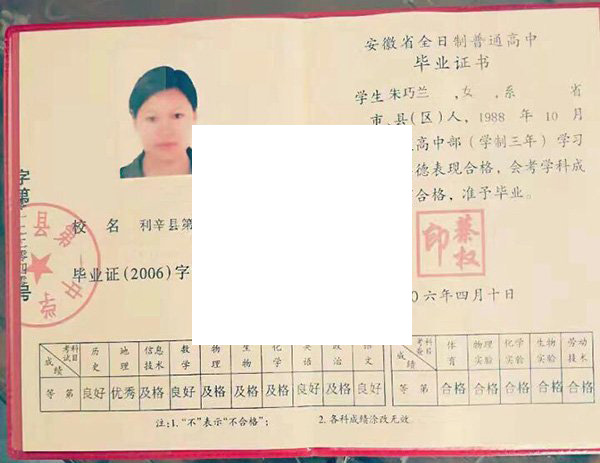 安徽省全日制普通高中
毕业证书
学生 朱巧兰 ,女,系 省
市、县(区)人, 1988 年 10 月
高中部(学制三年)学习
德表现合格,会考学科成
合格,准予毕业。
校 名 利辛县第
毕业证(2006)字
蔡权印
六年四月十日
考试科目 历史 地理 信息技术 数学 物理 生物 化学 英语 政治 语文
成绩 等第 良好 优秀 及格 良好 及格 及格 及格 良好 及格 良好
考查科目 体育 物理实验 化学实验 生物实验 劳动技术
成绩 等第 合格 合格 合格 合格 合格
注:1. “不”表示“不合格”; 2. 各科成绩涂改无效。